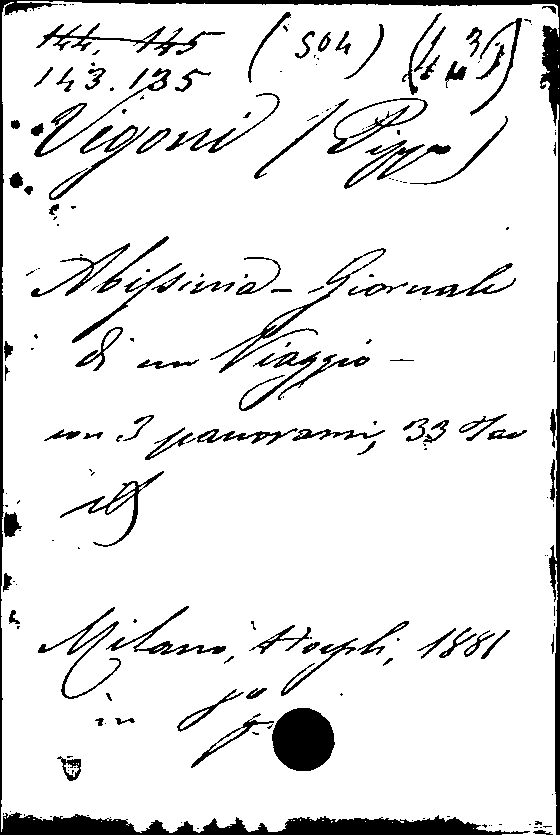 144. 145 (504)
143.135
Vigoni (Pippo)
Abissinia - Giornale
di un Viaggio -
con 3 panorami, 33 Tav
ill
Milano, Hoepli, 1881
in